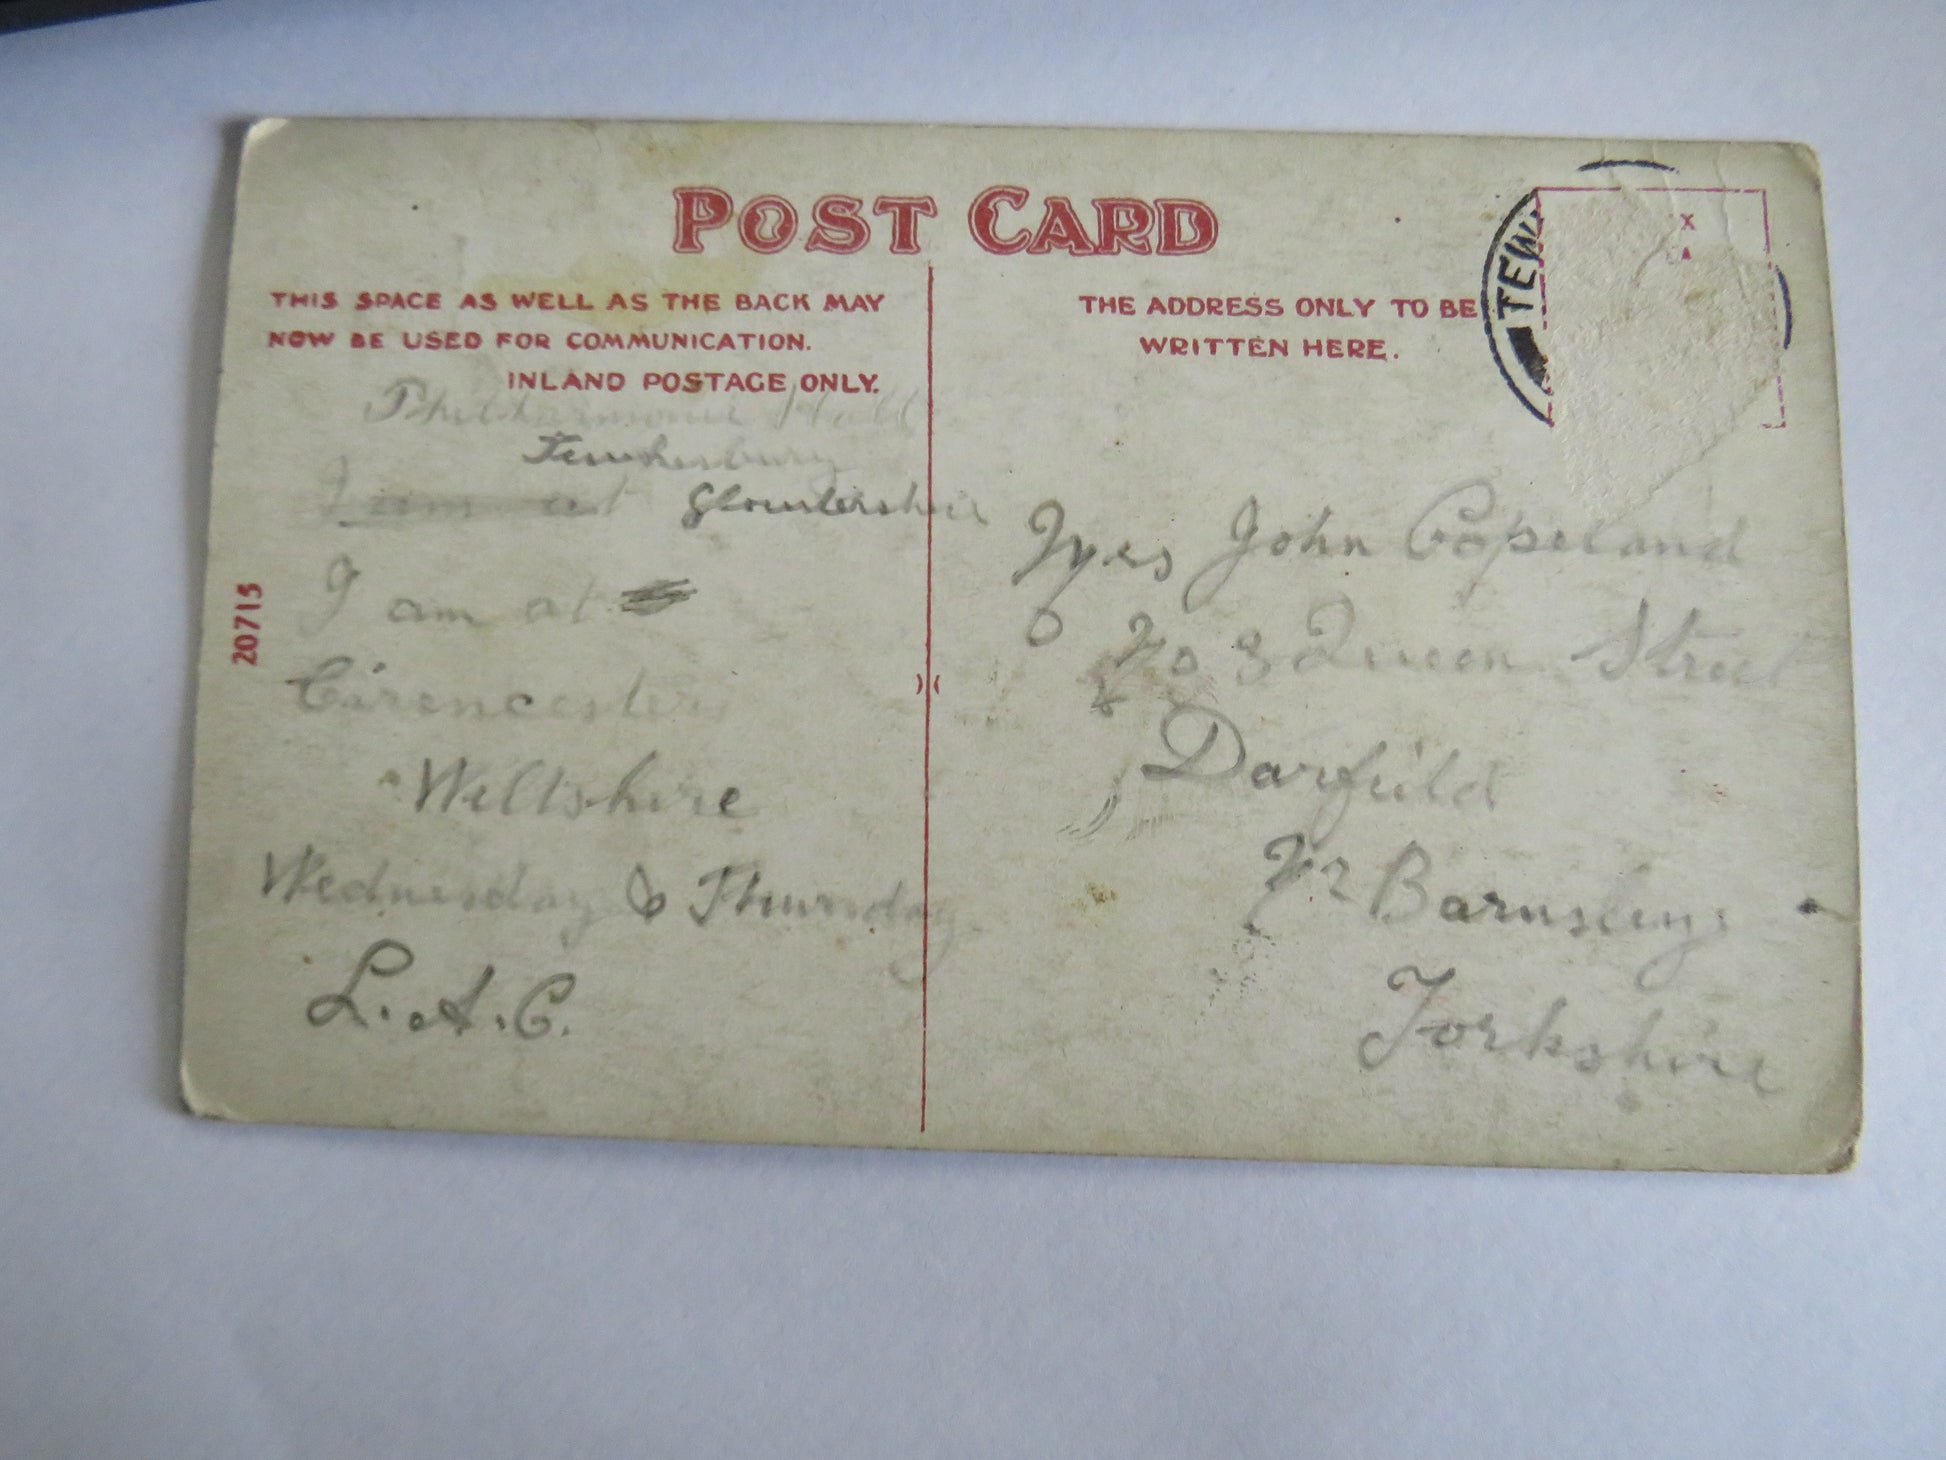 POST CARD
THIS SPACE AS WELL AS THE BACK MAY
NOW BE USED FOR COMMUNICATION.
INLAND POSTAGE ONLY.
Philharmonic Hall
Tewkesbury
I am at Gloucestershire
I am at
Cirencester
Wiltshire
Wednesday & Thursday
L.A.C.
20715
THE ADDRESS ONLY TO BE
WRITTEN HERE.
TEW
X
A
Mrs John Copeland
No 3 Queen Street
Darfield
Nr Barnsley
Yorkshire